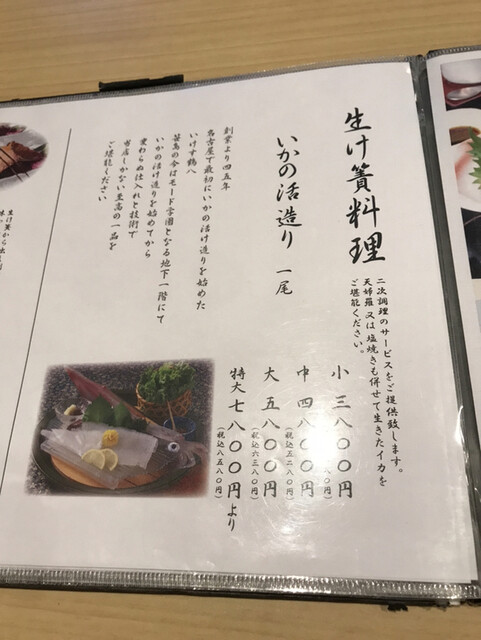 生け簀料理
二次調理のサービスをご提供致します。
天婦羅又は塩焼きも併せて生きたイカを
ご堪能ください。
いかの活造り 一尾
小 三八〇〇円
中 四八〇〇円
(税込五二八〇円)
大 五八〇〇円
(税込六三八〇円)
特大 七八〇〇円より
(税込八五八〇円)
創業より四五年
名古屋で最初にいかの活け造りを始めた
いけす鶴八
笹島の今はモード学園となる地下一階にて
いかの活け造りを始めてから
変わらぬ仕入れと技術で
当店しかない至高の一品を
ご堪能ください